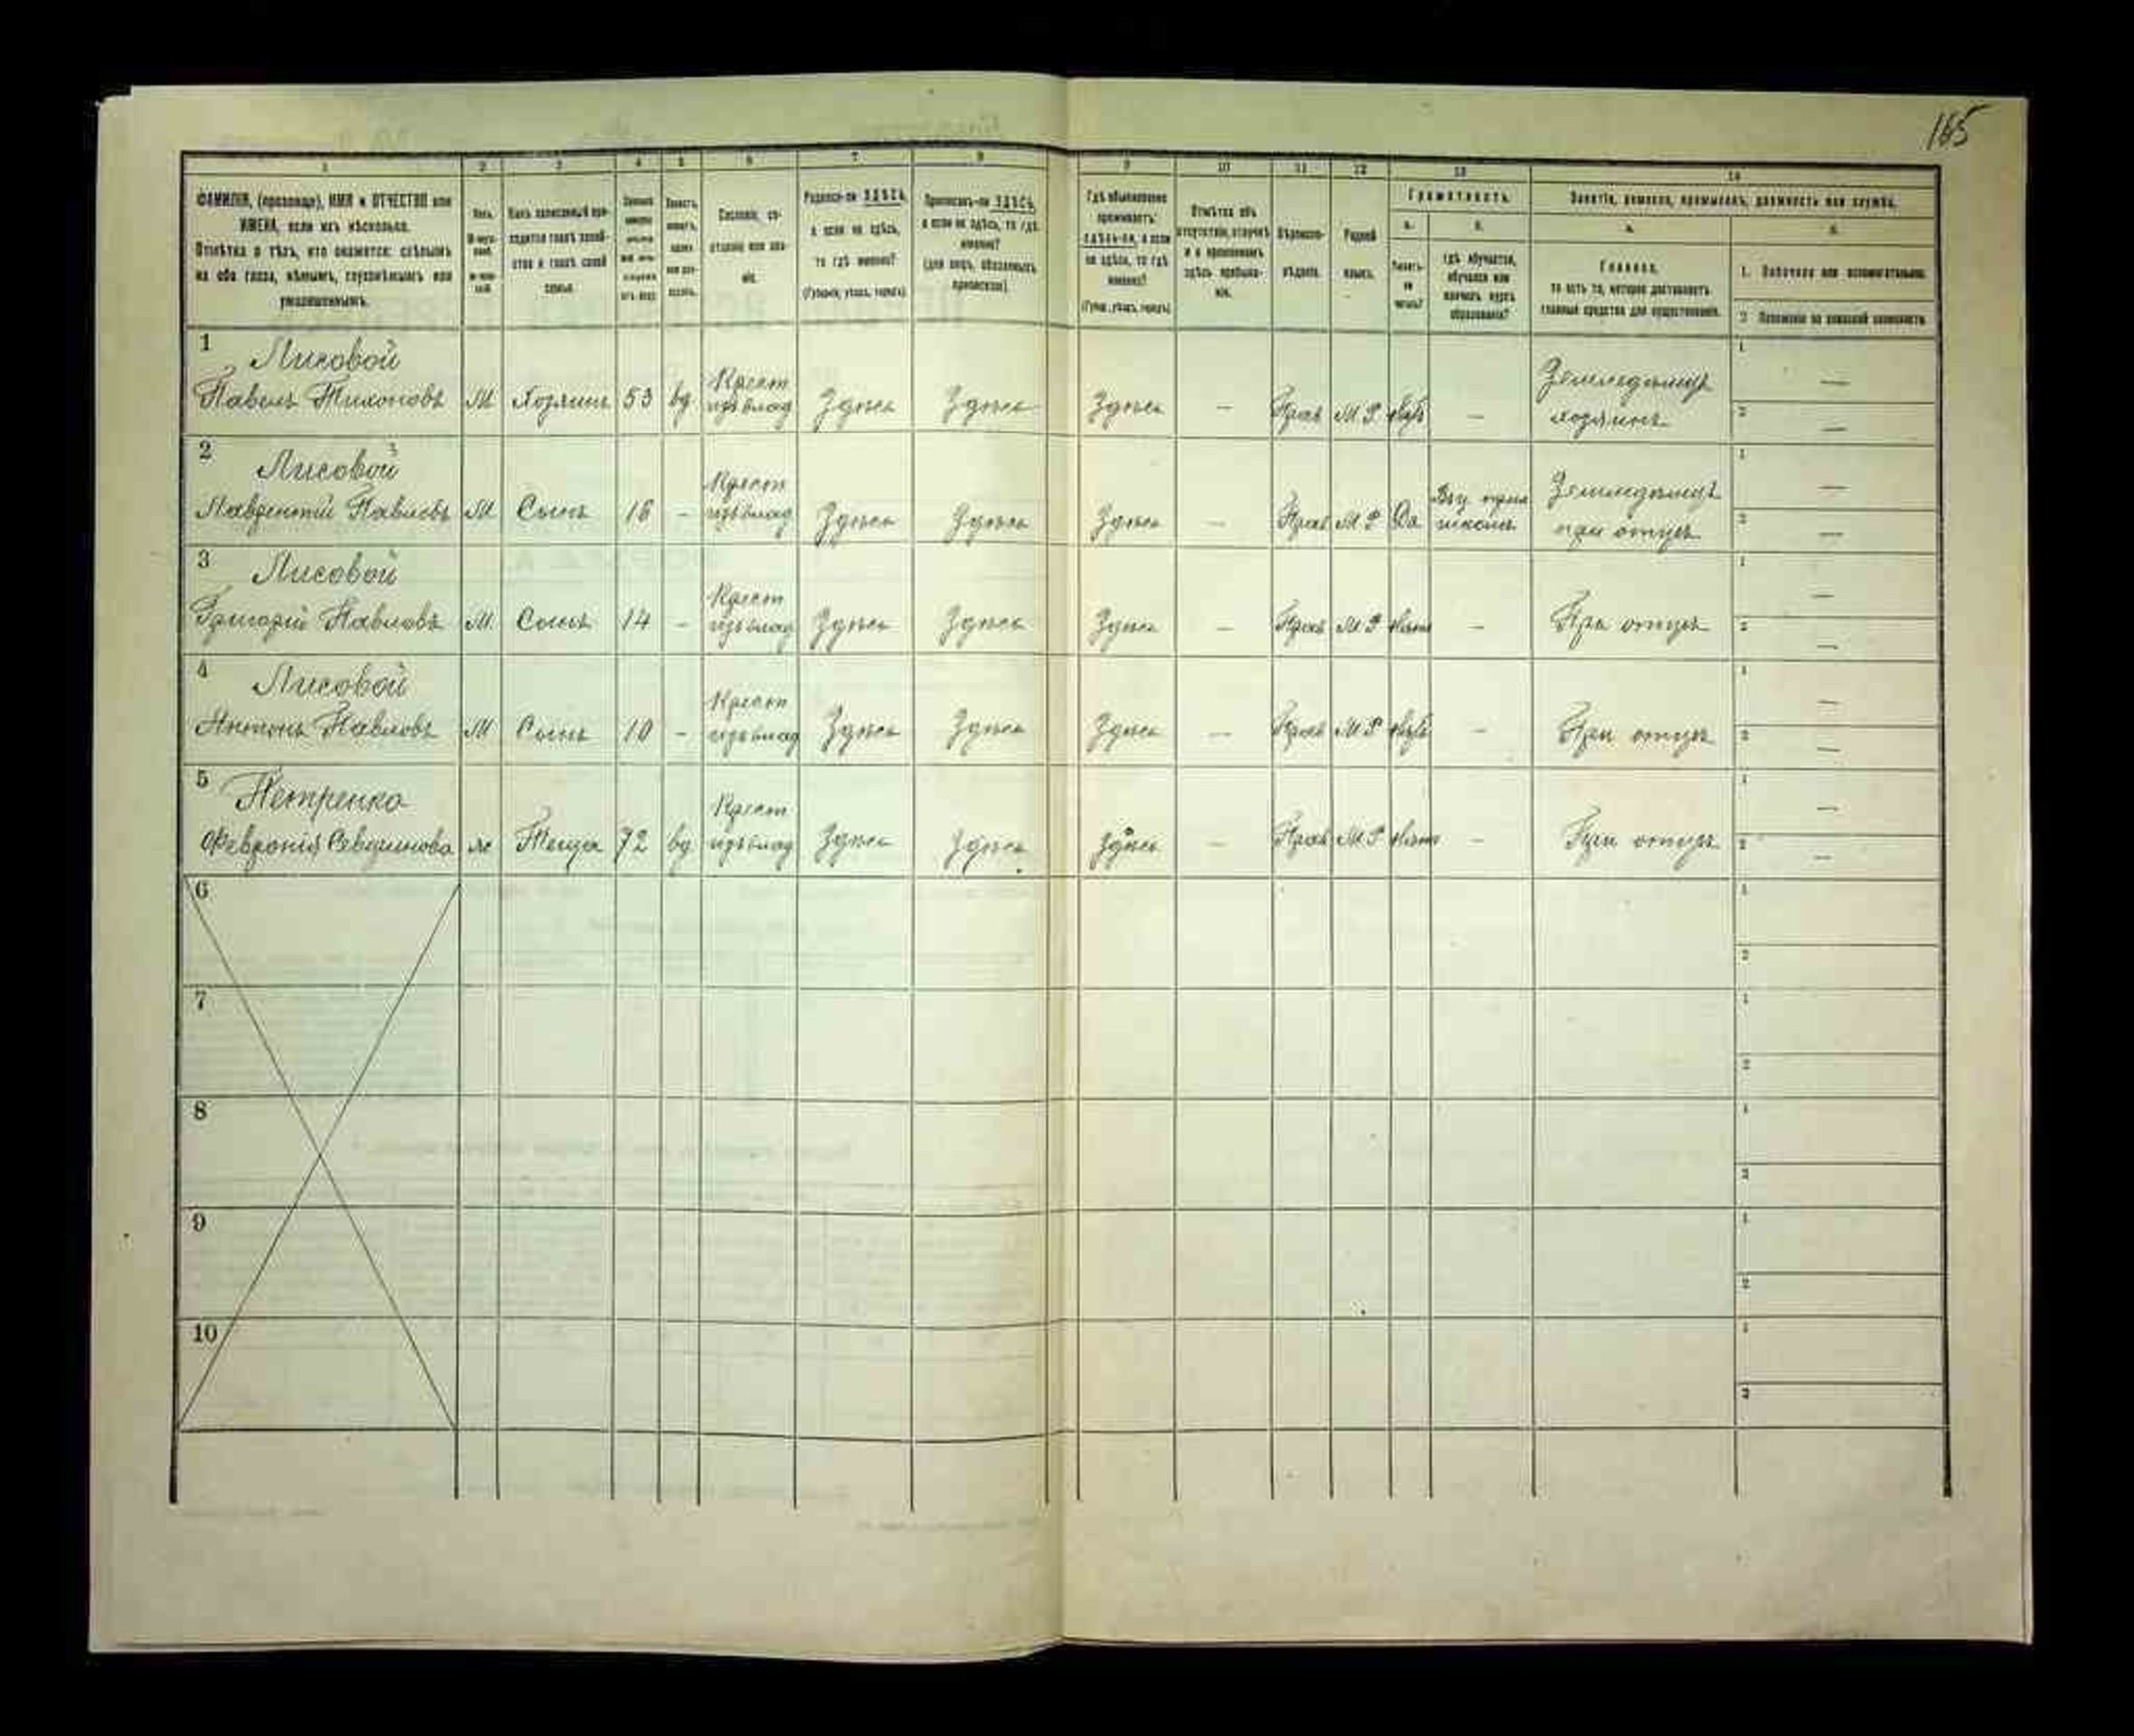 165
1 2 3 4 5 6 7 8 9 10 11 12 13 14
ФАМИЛІЯ, (прозвище), ИМЯ и ОТЧЕСТВО или
ИМЕНА, если ихъ нѣсколько.
Отмѣтка о тѣхъ, кто окажется: слѣпымъ
на оба глаза, нѣмымъ, глухонѣмымъ или
умалишеннымъ.
Полъ.
Какъ записанный при-
ходится главѣ хозяй-
ства и главѣ своей
семьи.
Сословіе, со-
стояніе или зва-
ніе.
Родился-ли ЗДѢСЬ,
а если не здѣсь,
то гдѣ именно?
(Губернія, уѣздъ, городъ)
Приписанъ-ли ЗДѢСЬ,
а если не здѣсь, то гдѣ
именно?
(для лицъ, обязанныхъ
припискою)
Гдѣ обыкновенно
проживаетъ:
ЗДѢСЬ-ЛИ, а если
не здѣсь, то гдѣ
именно?
(Губер., уѣздъ, городъ)
Отмѣтка объ
отсутствіи, отлучкѣ
и о временномъ
здѣсь пребыва-
ніи.
Вѣроиспо-
вѣданіе.
Родной
языкъ.
Грамотность.
а.
Умѣетъ-
ли
читать?
б.
гдѣ обучается,
обучался или
кончилъ курсъ
образованія?
Занятіе, ремесло, промыселъ, должность или служба.
а.
Главное,
то есть то, которое доставляетъ
главныя средства для существованія.
б.
1. Побочное или вспомогательное.
2. Положеніе по воинской повинности.
1 Лисовой
Павелъ Тихоновъ М Хозяинъ 53 вд Крест изъ влад Здѣсь Здѣсь Здѣсь — Прав М Р — Земледѣлецъ хозяинъ 1 — 2 —
2 Лисовой
Лаврентій Павловъ М Сынъ 16 - Крест изъ влад Здѣсь Здѣсь Здѣсь — Прав М Р Да школѣ Земледѣлецъ при отцѣ 1 — 2 —
3 Лисовой
Григорій Павловъ М Сынъ 14 - Крест изъ влад Здѣсь Здѣсь Здѣсь — Прав М Р Нѣтъ — При отцѣ 1 — 2 —
4 Лисовой
Антонъ Павловъ М Сынъ 10 - Крест изъ влад Здѣсь Здѣсь Здѣсь — Прав М Р — При отцѣ 1 — 2 —
5 Петренко
Февронія ж Теща 72 вд Крест изъ влад Здѣсь Здѣсь Здѣсь — Прав М Р Нѣтъ — При отцѣ 1 — 2 —
6 1
2
7 1
2
8 1
2
9 1
2
10 1
2